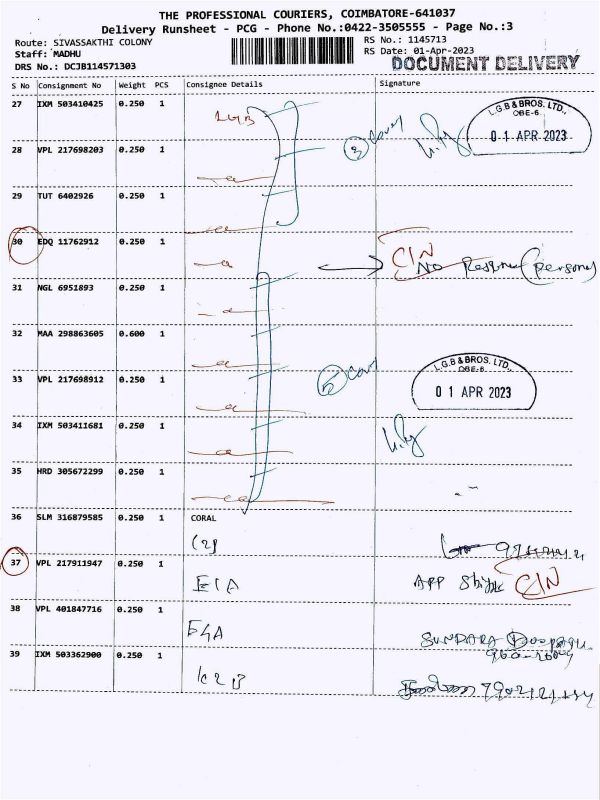 THE PROFESSIONAL COURIERS, COIMBATORE-641037
Delivery Runsheet - PCG - Phone No.:0422-3505555 - Page No.:3
Route: SIVASSAKTHI COLONY
Staff: MADHU
DRS No.: DCJB114571303
RS No.: 1145713
RS Date: 01-Apr-2023
DOCUMENT DELIVERY
S No Consignment No Weight PCS Consignee Details Signature
27 IXM 503410425 0.250 1 LGB
L.G.B & BROS. LTD.,
CBE-6.
01 APR 2023
3 Cover
28 VPL 217698203 0.250 1
29 TUT 6402926 0.250 1
30 EDQ 11762912 0.250 1 C/N
No
31 NGL 6951893 0.250 1
32 MAA 298863605 0.600 1
33 VPL 217698912 0.250 1
5 Cover
L.G.B & BROS. LTD.,
CBE-6.
01 APR 2023
34 IXM 503411681 0.250 1
35 HRD 305672299 0.250 1
36 SLM 316879585 0.250 1 CORAL
37 VPL 217911947 0.250 1 E1A C/N
38 VPL 401847716 0.250 1 F4A SUNDARA
39 IXM 503362900 0.250 1